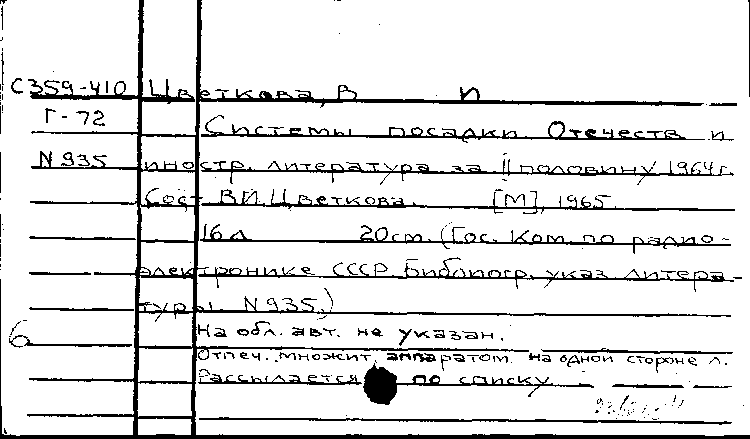 С359-410 Цветкова, В И
Г-72 Системы посадки. Отечеств и
N935 иностр. литература за II половину 1964 г.
Сост. В.И. Цветкова. [М], 1965.
16 л 20 см. (Гос. Ком. по радио-
электронике СССР Библиогр. указ литера-
туры. N935.)
6 На обл. авт. не указан.
Отпеч. множит. аппаратом на одной стороне л.
Рассылается по списку